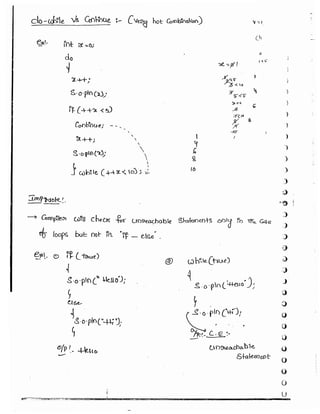 do-while Vs Continue :- (Very hot Combination)
Eg:- int x=0;
do
{
x++;
S.o.pln(x);
if (++x < 5)
Continue;
x++;
S.o.pln(x);
} while (++x < 10);
1
4
6
8
10
Important:-
→ Compiler will check for unreachable Statements only in the Case
of loops but not in 'if - else'.
Eg:- ① if (true)
{
S.o.pln("Hello");
}
else
{
S.o.pln("Hi");
}
o/p:- Hello
② while (true)
{
S.o.pln("Hello");
}
S.o.pln("Hi");
C.E:-
Unreachable
Statement